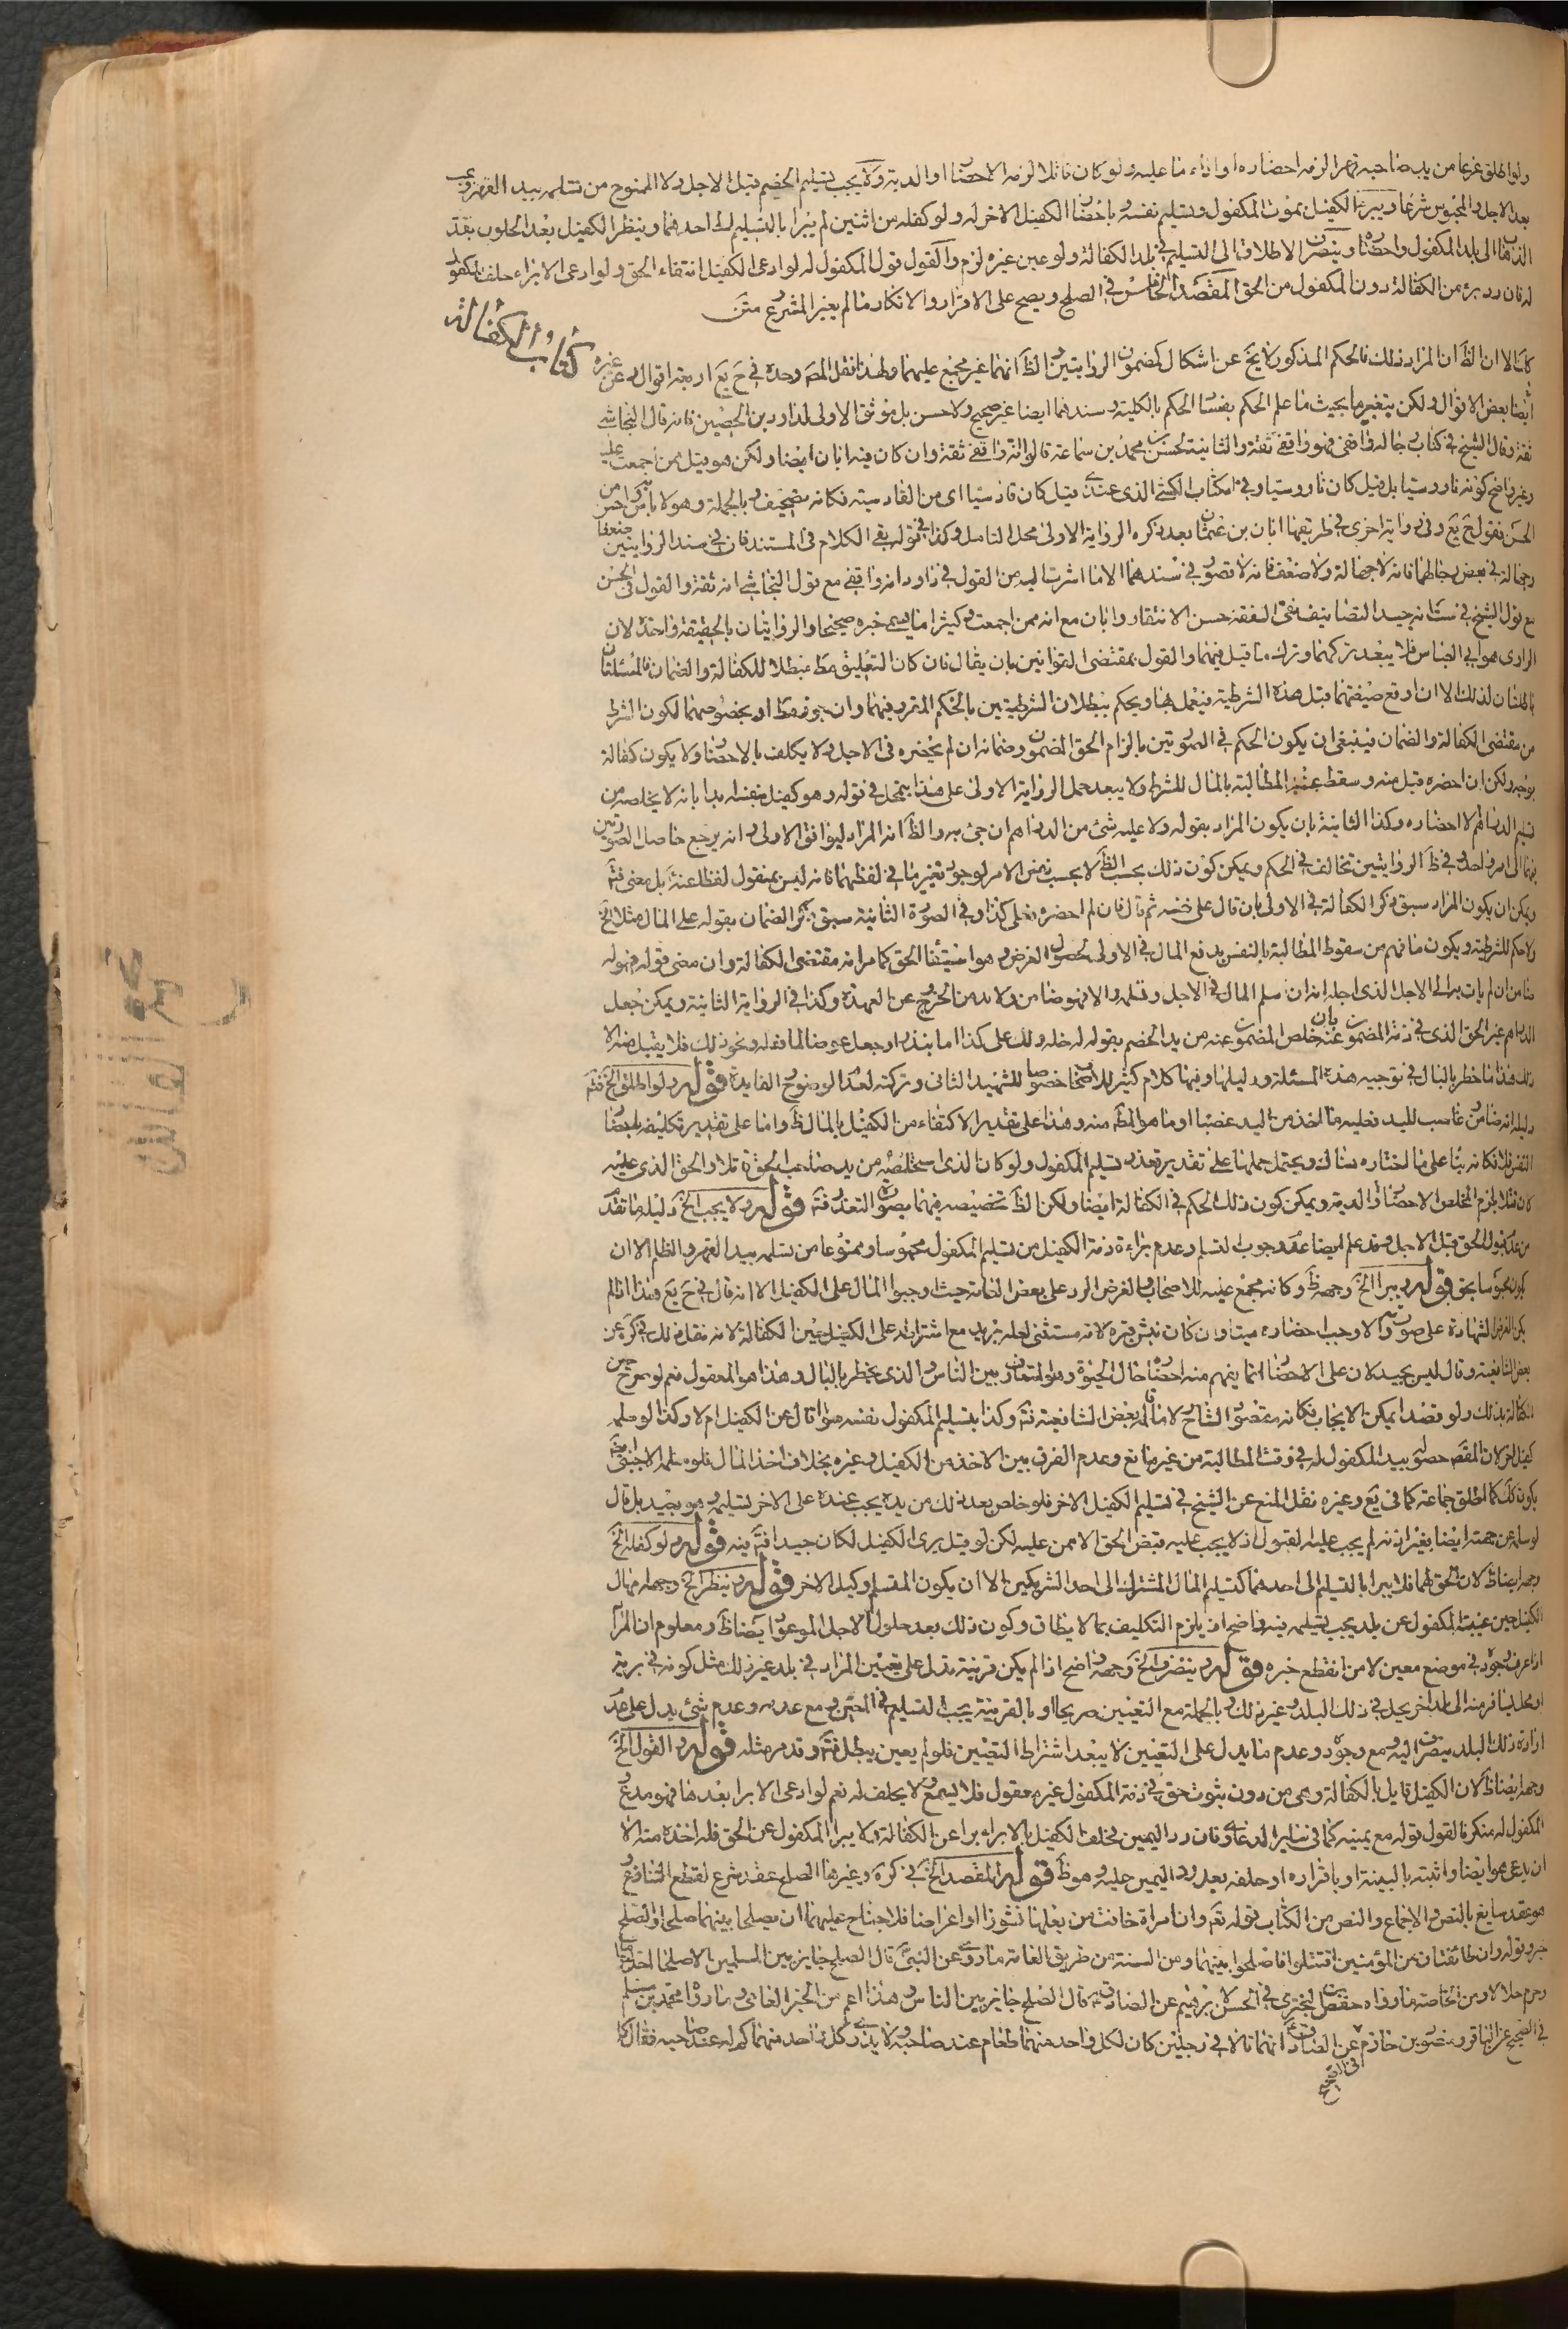 ولو اطلق غريما من يد صاحبه قهرا الزم احضاره او اداء ما عليه ولو كان قاتلا لزمه الاحضار او الدية ولا يجب تسليم الخصم قبل الاجل ولا الممنوع من تسلمه بيد القهر ويجب
بعد الاجل والمحبوس شرعا ويبرء الكفيل بموت المكفول وتسليم نفسه وباحضار الكفيل الاخر له ولو كفله من اثنين لم يبرا بالتسليم الى احدهما وينظر الكفيل بعد الحلول بقدر
الذهاب الى بلد المكفول واحضاره وينصرف الاطلاق الى التسليم في بلد الكفالة ولو عين غيره لزم والقول قول المكفول له لو ادعى الكفيل انتفاء الحق ولو ادعى الابراء حلف المكفول
له فان رد برء من الكفالة دون المكفول من الحق المقصد الخامس في الصلح ويصح على الاقرار والانكار ما لم يغير المشرع متن
كتاب الكفالة
كما الا ان الظ ان المراد ذلك فالحكم المذكور لا يخ عن اشكال كمضمون الروايتين الظ انهما غير مجمع عليهما ولهذا نقل المصه وحده في ح يع اربعة اقوال وعن غيره
ايضا بعض الاقوال ولكن بتغير ما بحيث ما علم الحكم بفساد الحكم بالكلية وسندهما ايضا غير صحيح ولا حسن بل موثق الاولى لداود بن الحصين فانه قال النجاشي
ثقة وقال الشيخ في كتاب رجاله واقفي فهو واقفي ثقة والثانية لحسن بن محمد بن سماعة قالوا انه واقفي ثقة وان كان فيه ابان ايضا ولكن هو قيل ممن اجمعت عليه
وغير واضح كونه ناووسيا بل قيل كان ناووسيا وفي الكتاب الكشي الذي عندي قيل كان قادسيا اى من القادسية فكانه تصحيف وبالجملة وهو لا باس به وامن
الحسن فقول ح يع وفي رواية اخرى في طريقها ابان بن عثمان بعد ذكره الرواية الاولى محل التامل وكذا في قوله بقي الكلام في المستند فان في سند الروايتين ضعفا
وجهالة في بعض رجالهما فانه لا جهالة ولا ضعف فانه لا قصور في سندهما الا ما اشرت اليه من القول في داود انه واقفي مع قول النجاشي انه ثقة والقول في الحسن
مع قول الشيخ في ست انه جيد التصانيف نقي الفقه حسن الانتقاد وابان مع انه ممن اجمعت وكثيرا ما يسمى خبره صحيحا والروايتان بالحقيقة واحدة لان
الراوى هو ابي العباس فلا يبعد تركهما وترك ما قيل فيهما والقول بمقتضى القوانين بان يقال فان كان التعليق مط مبطلا للكفالة والضمان فالمسئلتان
باطلتان لذلك الا ان اوقع صيغتهما قبل هذه الشرطية فيعمل بها ويحكم ببطلان الشرطيتين بالحكم المقرر فيهما وان جوز مط او بخصوصهما لكون الشرط
من مقتضى الكفالة والضمان فينبغي ان يكون الحكم في الصورتين بالزام الحق المضمون وضمانه ان لم يحضره في الاجل ولا يكلف بالاحضار ولا يكون كفالة
بوجه ولكن ان احضره قبل منه وسقط عنه المطالبة بالمال للشرط ولا يبعد حمل الرواية الاولى على هذا بحمل في قوله وهو كفيل بنفسه ابدا بانه لا يخلصه من
تسليم الدراهم الا احضاره وكذا الثانية بان يكون المراد بقوله ولا عليه شئ من الدراهم ان جئ به والظ انه المراد ليوافق الاولى وانه يرجع حاصل الصورتين
فيهما الى امر واحد وفي ظ الروايتين تخالف في الحكم ويمكن كون ذلك بحسب الظ لا بحسب نفس الامر لوجود تغير ما في لفظهما فانه ليس بمنقول لفظا عنه بل معنى فتم
ويمكن ان يكون المراد سبق ذكر الكفالة في الاولى بان قال على نفسه ثم قال فان لم احضره فعلى كذا وفي الصورة الثانية سبق ذكر الضمان بقوله على المال مثلا الخ
ولا حكم للشرطية ويكون ما فهم من سقوط المطالبة بالنفس بدفع المال في الاولى لحصول الغرض وهو استيفاء الحق كما مر انه مقتضى الكفالة وان معنى قوله فهو له
ضامن ان لم يات به الى الاجل الذى اجله انه ان سلم المال في الاجل وقبله والا فهو ضامن ولا بد من الخروج عن العهدة وكذا في الرواية الثانية ويمكن جعل
الدراهم غير الحق الذى في ذمة المضمون عنه بان خلص المضمون عنه من يد الخصم بقوله له خله ولك على كذا اما بنذر او جعل عوضا لما فعله ونحو ذلك فلا يقبل منه الا
ذلك هذا ما خطر بالبال في توجيه هذه المسئلة ودليلها وفيها كلام كثير للاصحاب خصوصا للشهيد الثاني وتركته لعدم الوضوح الفايدة قوله ولو اطلق الخ فتم
دليله انه ضامن غاصب لليد فعليه ما اخذ من اليد غصبا او ما هو المط منه وهذا على تقدير الاكتفاء من الكفيل بالمال ظ واما على تقدير تكليفه باحضار
النفس فلا فكانه بناء على ما اختاره هناك ويحتمل حملها على تقدير تعذر تسليم المكفول ولو كان الذى استخلصه من يد صاحب الحق قاتلا والحق الذى عليه
كان قتلا لزم المخلص الاحضار او الدية ويمكن كون ذلك الحكم في الكفالة ايضا ولكن الظ تخصيصه فيهما بصورة التعذر فتم قوله ولا يجب الخ دليله ما تقدم
من عدم قبول الحق قبل الاجل وقد علم ايضا عدم وجوب التسلم وعدم براءة ذمة الكفيل من تسليم المكفول محبوسا وممنوعا من تسلمه بيد القهر والظالم الا ان
يكون محبوسا بحق قوله ويبرا الخ وجهه ظ وكانه مجمع عليه للاصحاب والغرض الرد على بعض العامة حيث اوجبوا المال على الكفيل الا انه قال في ح يع هذا اذا لم
يكن الغرض الشهادة على صورته والا وجب احضاره ميتا وان كان نبش قبره لانه مستثنى لعله يريد مع اشتراطه على الكفيل حين الكفالة لانه نقل ذلك في كره عن
بعض الشافعية وقال ليس بجيد لان على الاحضار انما يفهم منه احضاره حال الحيوة وهو المتعارف بين الناس والذى يخطر بالبال وهذا هو المعقول نعم لو صرح من
الكفالة بذلك ولو قصدا يمكن الايجاب فكانه مقصود الشارح لا ما قاله بعض الشافعية فتم وكذا بتسليم المكفول نفسه سواء قال عن الكفيل ام لا وكذا لو سلمه
كفيل اخر لان المقصد حصوله بيد المكفول له في وقت المطالبة من غير مانع وعدم الفرق بين الاخذ من الكفيل وغيره بخلاف اخذ المال فلو سلمه الاجنبي
يكون كك كما اطلق جماعة كما في يع وغيره نقل المنع عن الشيخ في تسليم الكفيل الاخر فلو خلص بعد ذلك من يده يجب عنده على الاخر تسليمه وهو بعيد بل قال
لو سلمه عن جهته ايضا بغير اذنه لم يجب عليه القبول اذ لا يجب عليه قبض الحق الا ممن عليه لكن لو قبل برئ الكفيل لكان جيدا فتم فيه قوله ولو كفله الخ
وجهه ايضا ظ لان الحق لهما فلا يبرا بالتسليم الى احدهما كتسليم المال المشترك الى احد الشريكين الا ان يكون المتسلم وكيل الاخر قوله وينظر الخ وجه امهال
الكفيل حين غيبة المكفول عن بلد يجب تسليمه فيه واضح اذ يلزم التكليف بما لا يطاق وكون ذلك بعد حلول الاجل الموعود ايضا ظ ومعلوم ان المراد
اذا عرف وجوده في موضع معين لا من انقطع خبره قوله وينصرف الخ وجهه واضح اذا لم يكن قرينة تدل على تعيين المراد في بلد غير ذلك مثل كونه في برية
او محل يسافر منه الى بلد اخر يحل في ذلك البلد وغير ذلك وبالجملة مع التعيين صريحا او بالقرينة يجب التسليم في المعين ومع عدمه وعدم شئ يدل على عدم
ارادة ذلك البلد ينصرف اليه ومع وجوده وعدم ما يدل على التعيين لا يبعد اشتراط التعيين فلو لم يعين يبطل فتم وقد مر مثله قوله والقول الخ
وجهه ايضا ظ لان الكفيل قايل بالكفالة وهي من دون ثبوت حق في ذمة المكفول غير معقول فلا يسمع ولا يحلف له نعم لو ادعى الابرا بعدها فهو مدع
المكفول له منكر فالقول قوله مع يمينه كما في ساير الدعاوى فان رد اليمين فحلف الكفيل بالابراء برا عن الكفالة ولا يبرا المكفول عن الحق فله اخذه منه الا
ان يدعى هو ايضا واثبته بالبينة او باقراره او حلفه بعد رد اليمين عليه وهو ظ قوله المقصد الخ في كره وغيرها الصلح عقد شرع لقطع التنازع
هو عقد سايغ بالنص والاجماع والنص من الكتاب قوله تعم وان امراة خافت من بعلها نشوزا او اعراضا فلا جناح عليهما ان يصلحا بينهما صلحا والصلح
خير وقوله وان طائفتان من المؤمنين اقتتلوا فاصلحوا بينهما ومن السنة من طريق العامة ما روى عن النبي ص قال الصلح جايز بين المسلمين الا صلحا احل حراما
وحرم حلالا ومن الخاصة ما رواه حفص بن البختري في الحسن لابرهيم عن الصادق ع قال الصلح جايز بين الناس وهذا اعم من الخبر العامي وما رواه محمد بن مسلم
في الصحيح عن الباقر ومنصور بن حازم في الصحيح عن الصادق ع انهما قالا في رجلين كان لكل واحد منهما طعام عند صاحبه ولا يدرى كل واحد منهما كم له عند صاحبه فقال كل